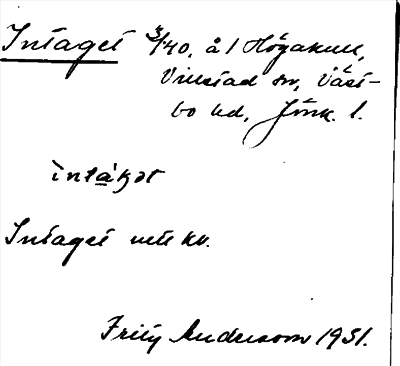 Intaget 3/40, å 1 Högakull,
Villstad sn, Väst-
bo hd, Jönk. l.
ìntàkət
Intaget utt kv.
Fritz Andersson 1931.